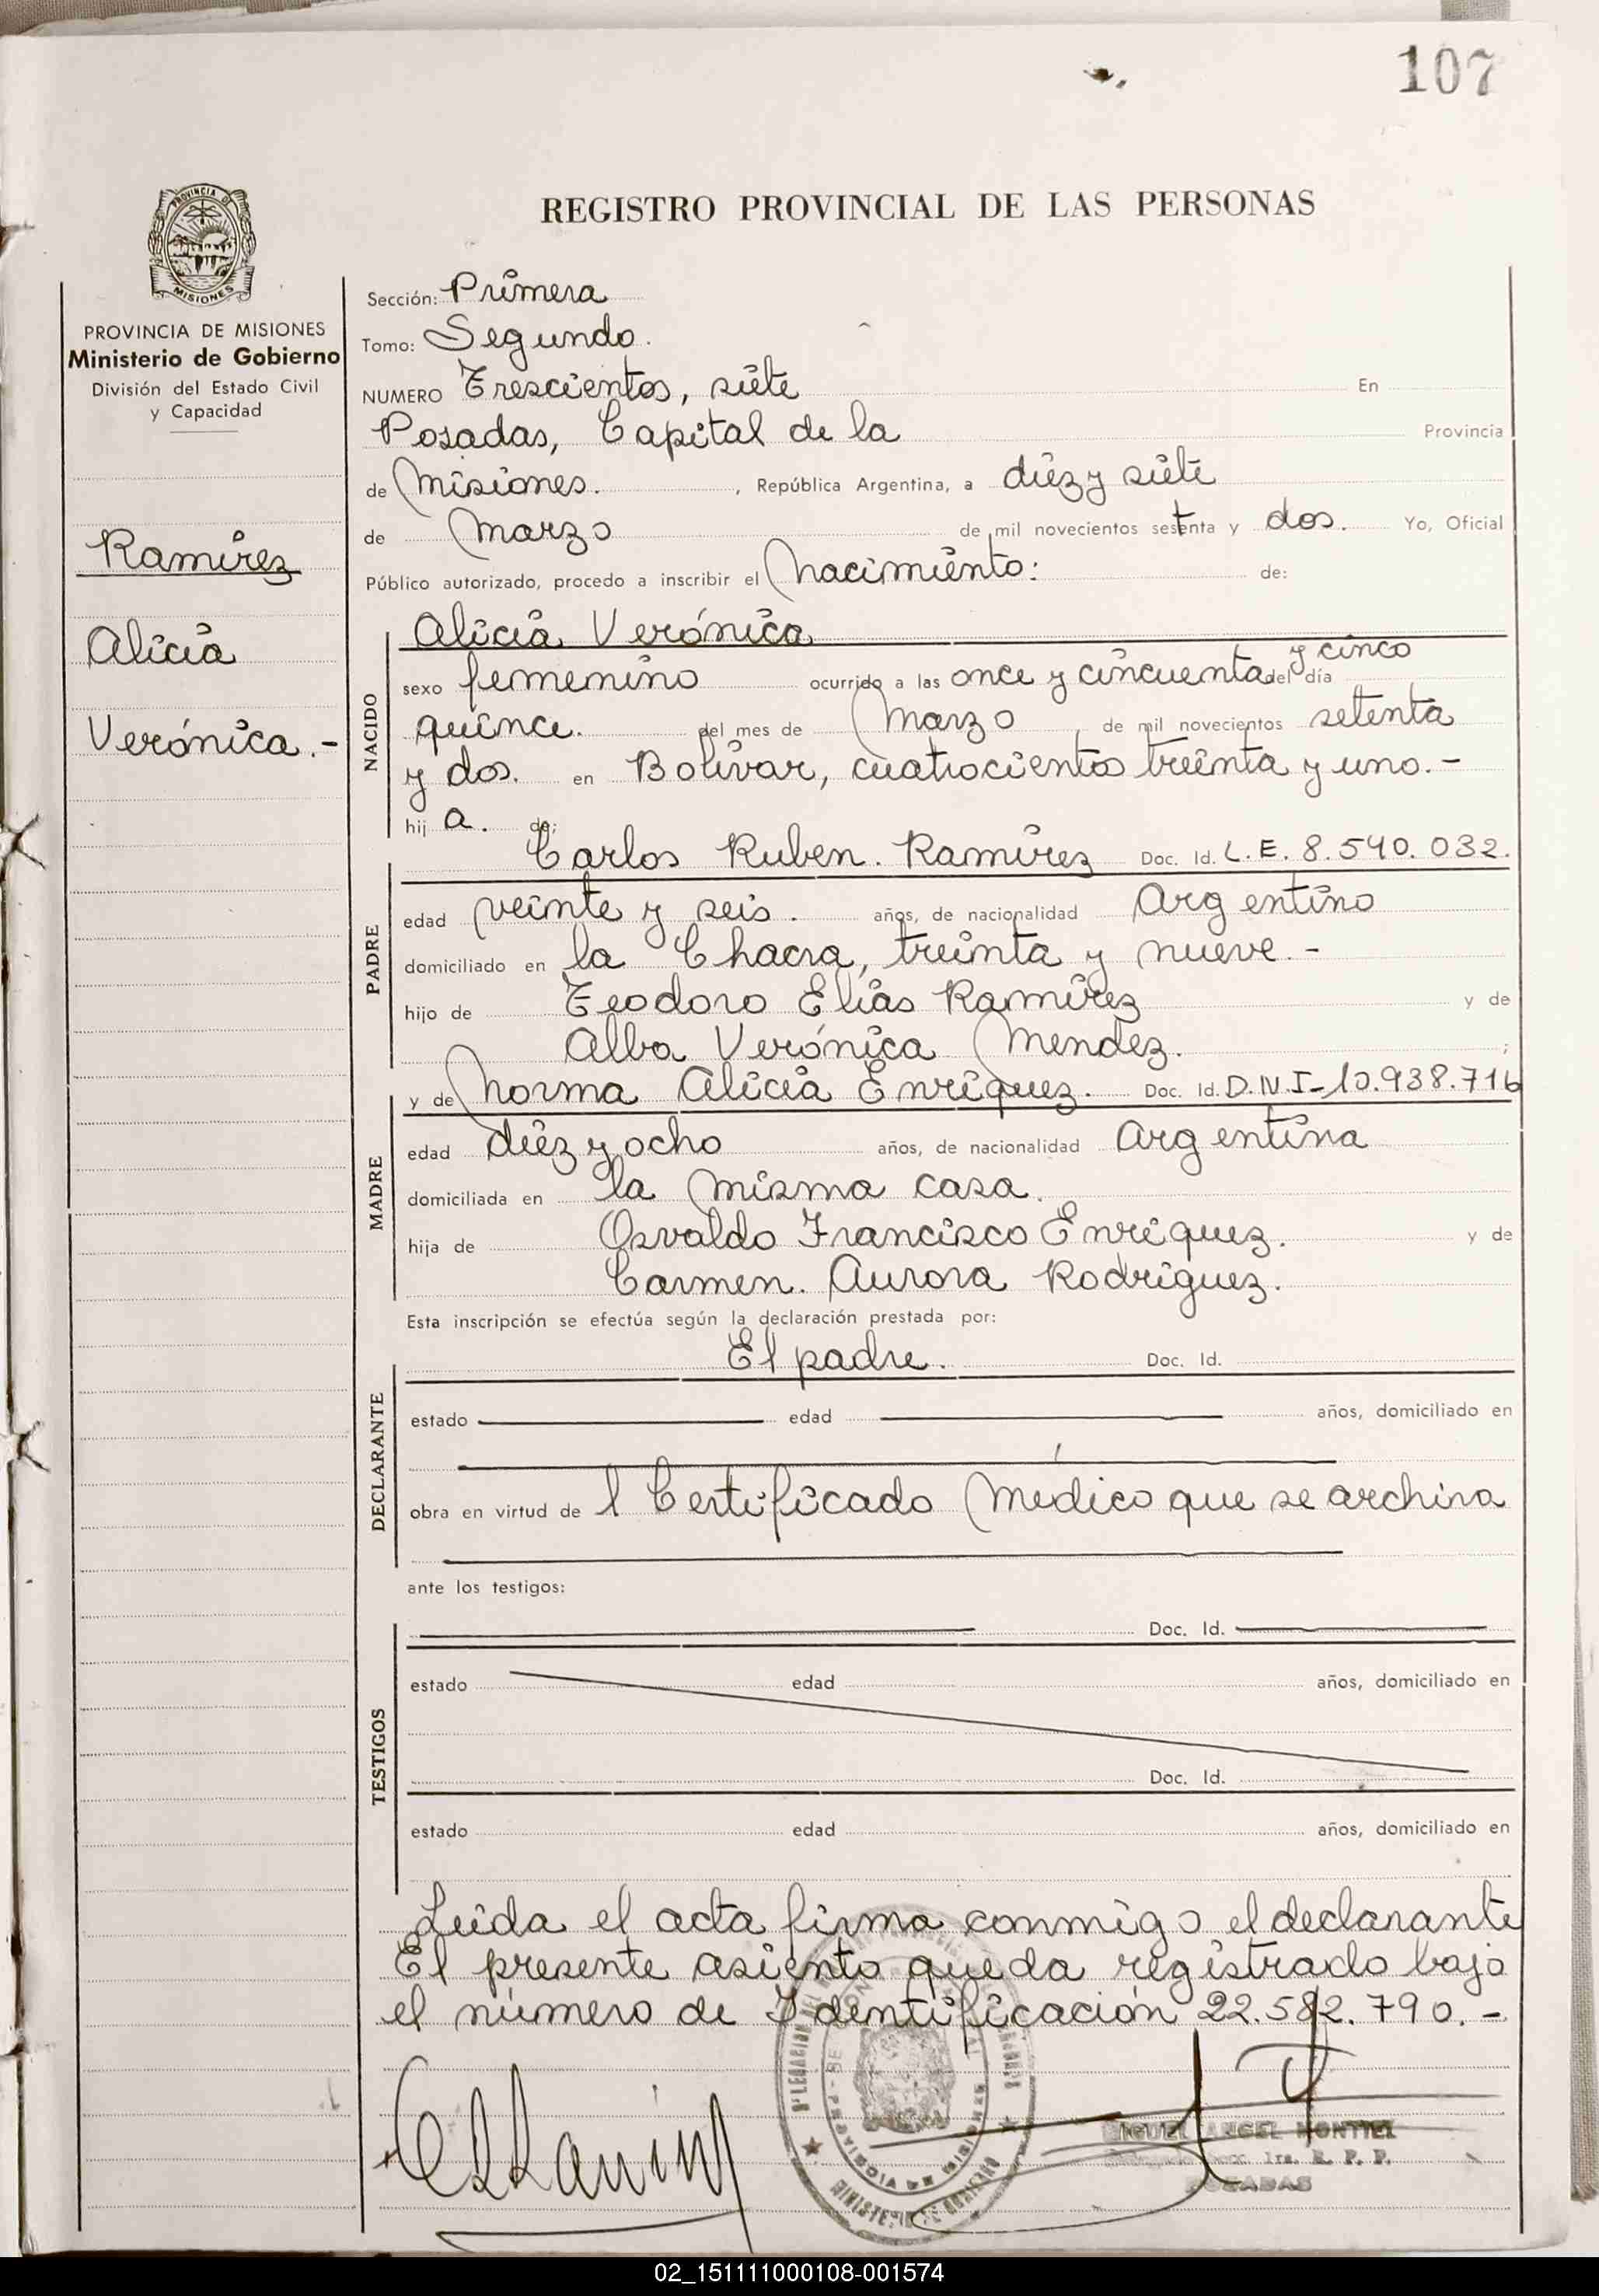 107
REGISTRO PROVINCIAL DE LAS PERSONAS
PROVINCIA DE
MISIONES
PROVINCIA DE MISIONES
Ministerio de Gobierno
División del Estado Civil
y Capacidad
Ramírez
Alicia
Verónica.-
Sección: Primera
Tomo: Segundo.
NUMERO Trescientos, siete En
Posadas, Capital de la Provincia
de Misiones. , República Argentina, a diez y siete
de Marzo de mil novecientos setenta y dos. Yo, Oficial
Público autorizado, procedo a inscribir el Nacimiento: de:
NACIDO
Alicia Verónica
y cinco
sexo femenino ocurrido a las once y cincuenta del día
quince. del mes de Marzo , de mil novecientos setenta
y dos. en Bolívar, cuatrocientos treinta y uno.-
hij a. de:
PADRE
Carlos Ruben. Ramírez Doc. Id. L.E. 8.540.032.
edad veinte y seis. años, de nacionalidad Argentino
domiciliado en la Chacra, treinta y nueve.-
hijo de Teodoro Elías Ramírez y de
Alba Verónica Mendez. ;
MADRE
y de Norma Alicia Enríquez. Doc. Id. D.N.I-10.938.716
edad diez y ocho años, de nacionalidad Argentina
domiciliada en la misma casa.
hija de Osvaldo Francisco Enríquez. y de
Carmen. Aurora Rodríguez.
Esta inscripción se efectúa según la declaración prestada por:
DECLARANTE
El padre. Doc. Id.
estado edad años, domiciliado en
obra en virtud de l Certificado Médico que se archiva
ante los testigos:
TESTIGOS
Doc. Id.
estado edad años, domiciliado en
Doc. Id.
estado edad años, domiciliado en
Leída el acta firma conmigo el declarante
El presente asiento queda registrado bajo
el número de Identificación 22.582.790.-
PROVINCIA DE MISIONES
MINISTERIO DE GOBIERNO
MIGUEL ANGEL MONTIEL
Secc. 1ra. R. P. P.
POSADAS
02_151111000108-001574